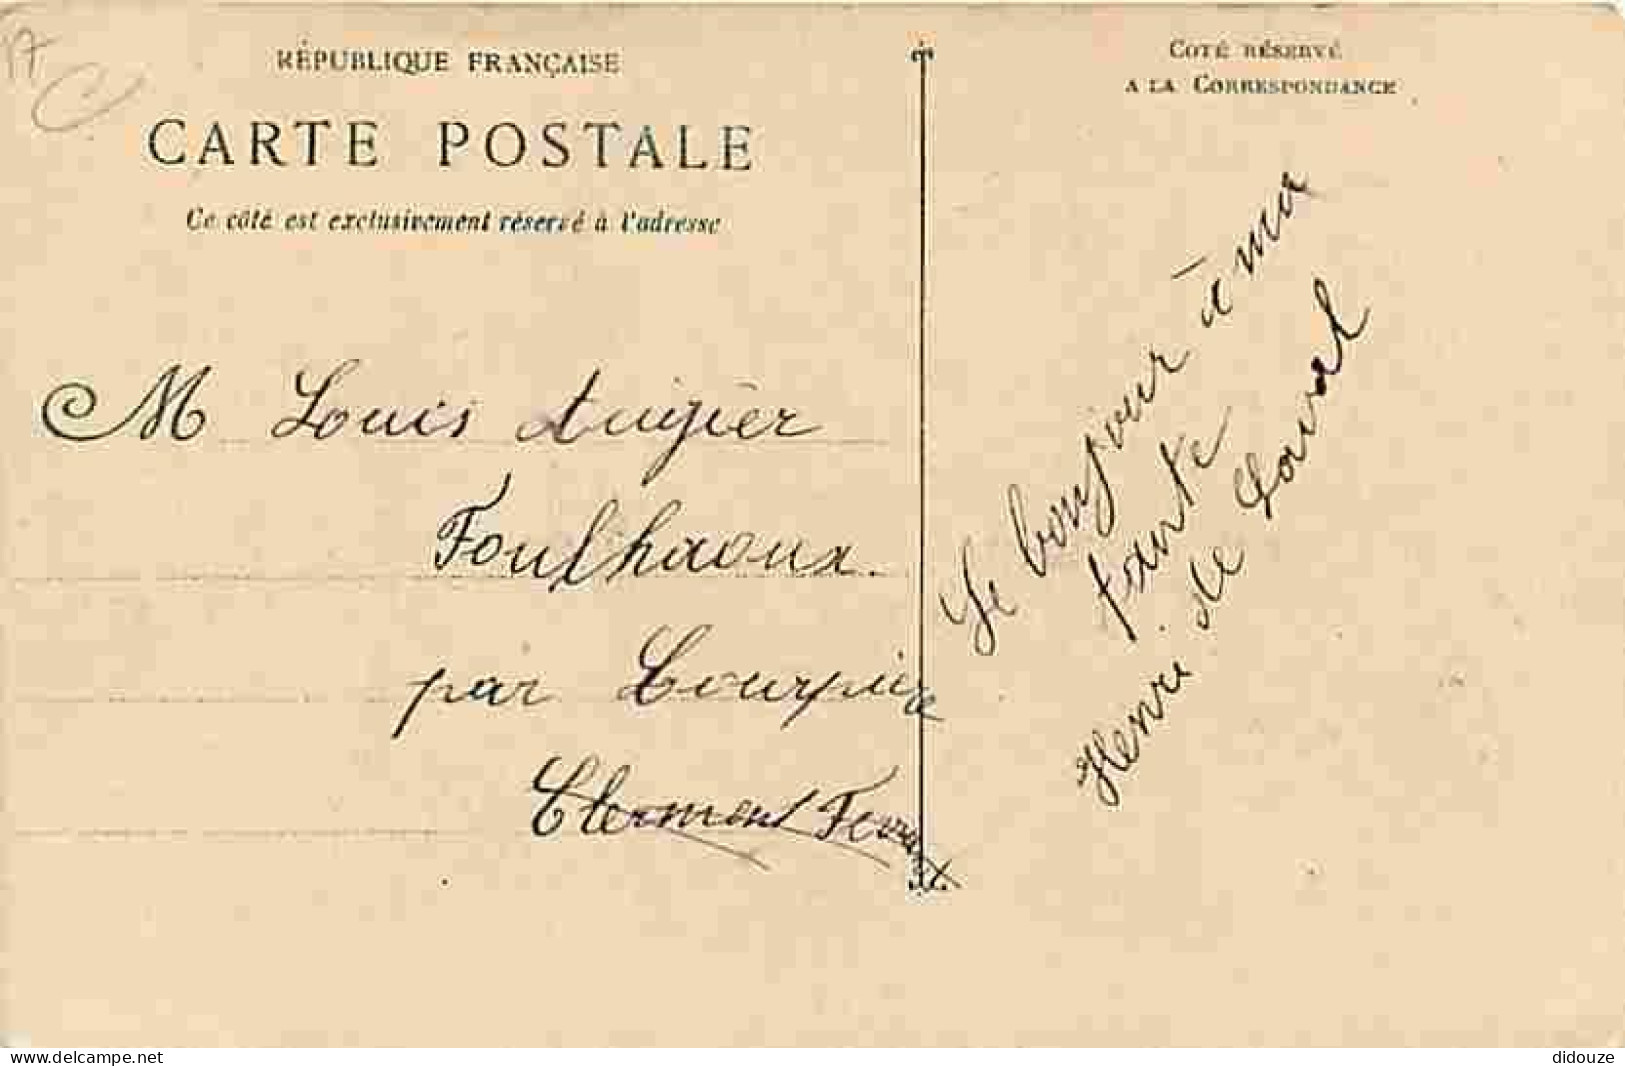 17
C
RÉPUBLIQUE FRANÇAISE
CARTE POSTALE
Ce côté est exclusivement réservé à l'adresse
M Louis Augier
Foulhaoux.
par Courpière
Clermont Ferrand
COTÉ RÉSERVÉ
A LA CORRESPONDANCE
Le bonjour à ma
tante
Henri de
www.delcampe.net
didouze